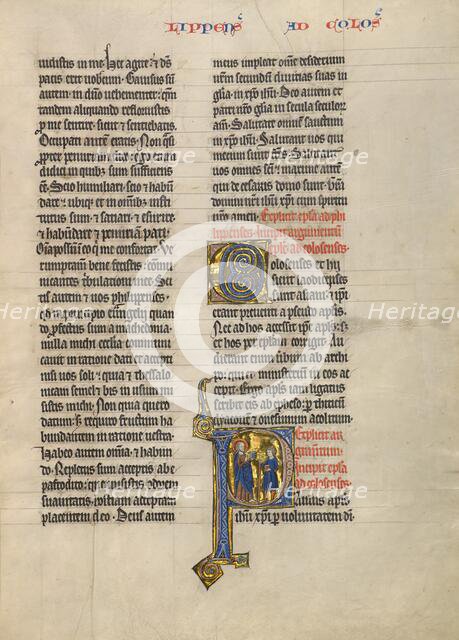 LIPPENS̄ AD COLOS̄
uidistis in me. Hec agite. & ds̄
pacis erit uobiscum. Gauisus sū
autem in dn̄o uehementer. qm̄
tandem aliquando refloruistis
ꝑ me sentire. sicut & sentiebatis.
Occupati autē eratis. Non q̄si
propter penuriam dico. ego enim
didici in quibus sum sufficiens
eē. Scio humiliari. scio & habun
dare. ubiq; & in omnibꝫ insti
tutus sum. & satiari. & esurire
& habundare & penuriam pati.
Om̄ia possū in eo q̄ me confortat. Ve
rumptamen bene fecistis. comu
nicantes tribulationi mee. Sci
tis autem & uos philippenses.
quando ꝓfectus sum a macedonia.
nulla michi eccl̄ia communi
cauit in ratione dati & accepti
nisi uos soli. quia & thessaloni
cam semel & bis in usum mi
sistis michi. Non quia quero
datum. sꝫ requiro fructum ha
bundantem in ratione uestra.
Habeo autem om̄ia. & habun
do. Repletus sum acceptis ab e
pafrodito. que misistis. odorem
suauitatis. hostiam acceptam
placentem deo. Deus autem
meus impleat om̄e desiderium
ur̄m secundū diuitias suas in
gl̄ia. in xp̄o ih̄u. Deo autem et
patri nr̄o gl̄ia in secula seculor̄
am̄. Salutate om̄em sanctum
in xp̄o ih̄u. Salutant uos qui
mecum sunt fr̄s. Salutant
uos omnes sc̄i. & maxime autē
qui de cesaris domo sunt. Gr̄a
domini nr̄i ih̄u xp̄i cum spiritu
ur̄o amen. Explicit epl̄a ad phi
lippenses. incipit argumentū
epl̄e ad colosenses.
Colosenses et hii
sicut laodicenses
sunt asiani. ip̄i
preuenti a pseudo apl̄is.
Nec ad hos accessit ip̄e apl̄s. s;
et hos per epl̄am corrigit. Au
dierant enim uerbum ab archip
po. qui & ministerium in eos ac
cepit. Ergo apl̄s iam ligatus
scribit eis ab epheso. ꝑ thiticū
diaconē & onesimum acolitum.
Explicit ar
gumentum.
Incipit epl̄a
ad colosenses.
Paulus apl̄s
ih̄u xp̄i ꝑ uoluntatem di.
Heritage
Heritage
Heritage
Heritage
Heritage
Heritage